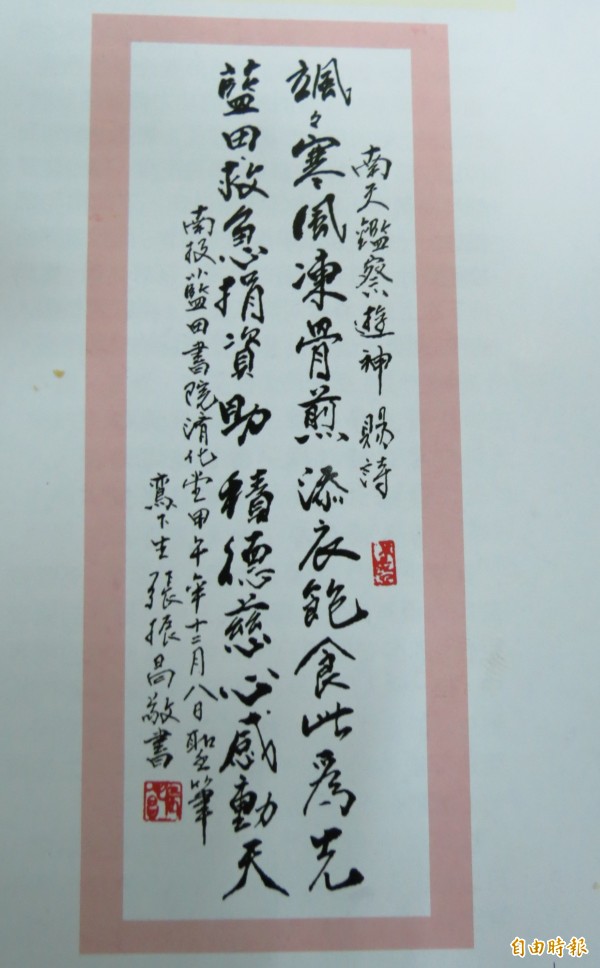 南天鑑察遊神 賜詩
颯々寒風凍骨煎 添衣飽食此為先
藍田救急捐資助 積德慈心感動天
南投藍田書院濟化堂甲午年十二月八日聖筆
鸞下生張振昌敬書
自由時報